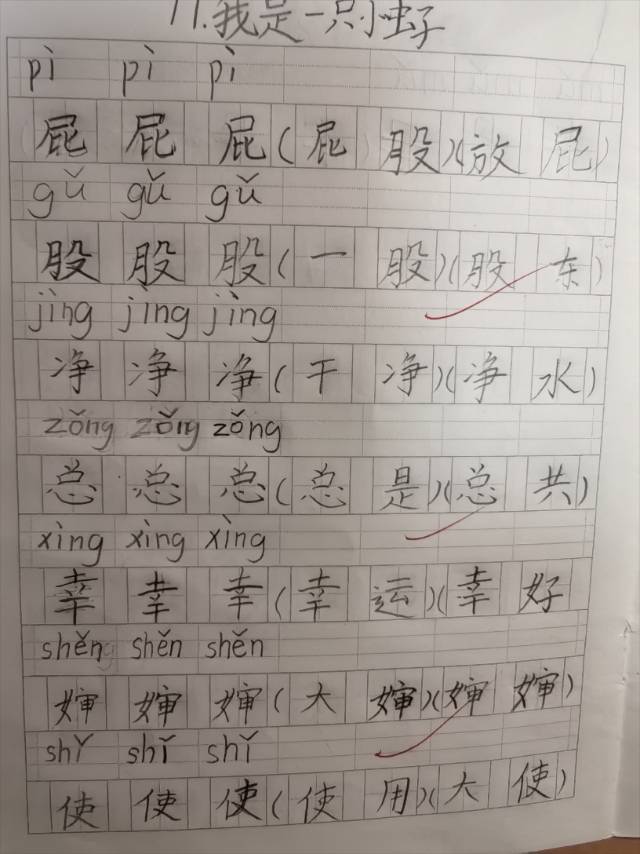 11.我是一只小虫子
pì pì pì
屁 屁 屁(屁 股)(放 屁)
gǔ gǔ gǔ
股 股 股(一 股)(股 东)
jìng jìng jìng
净 净 净(干 净)(净 水)
zǒng zǒng zǒng
总 总 总(总 是)(总 共)
xìng xìng xìng
幸 幸 幸(幸 运)(幸 好
shěn shěn shěn
婶 婶 婶(大 婶)(婶 婶)
shǐ shǐ shǐ
使 使 使(使 用)(大 使)